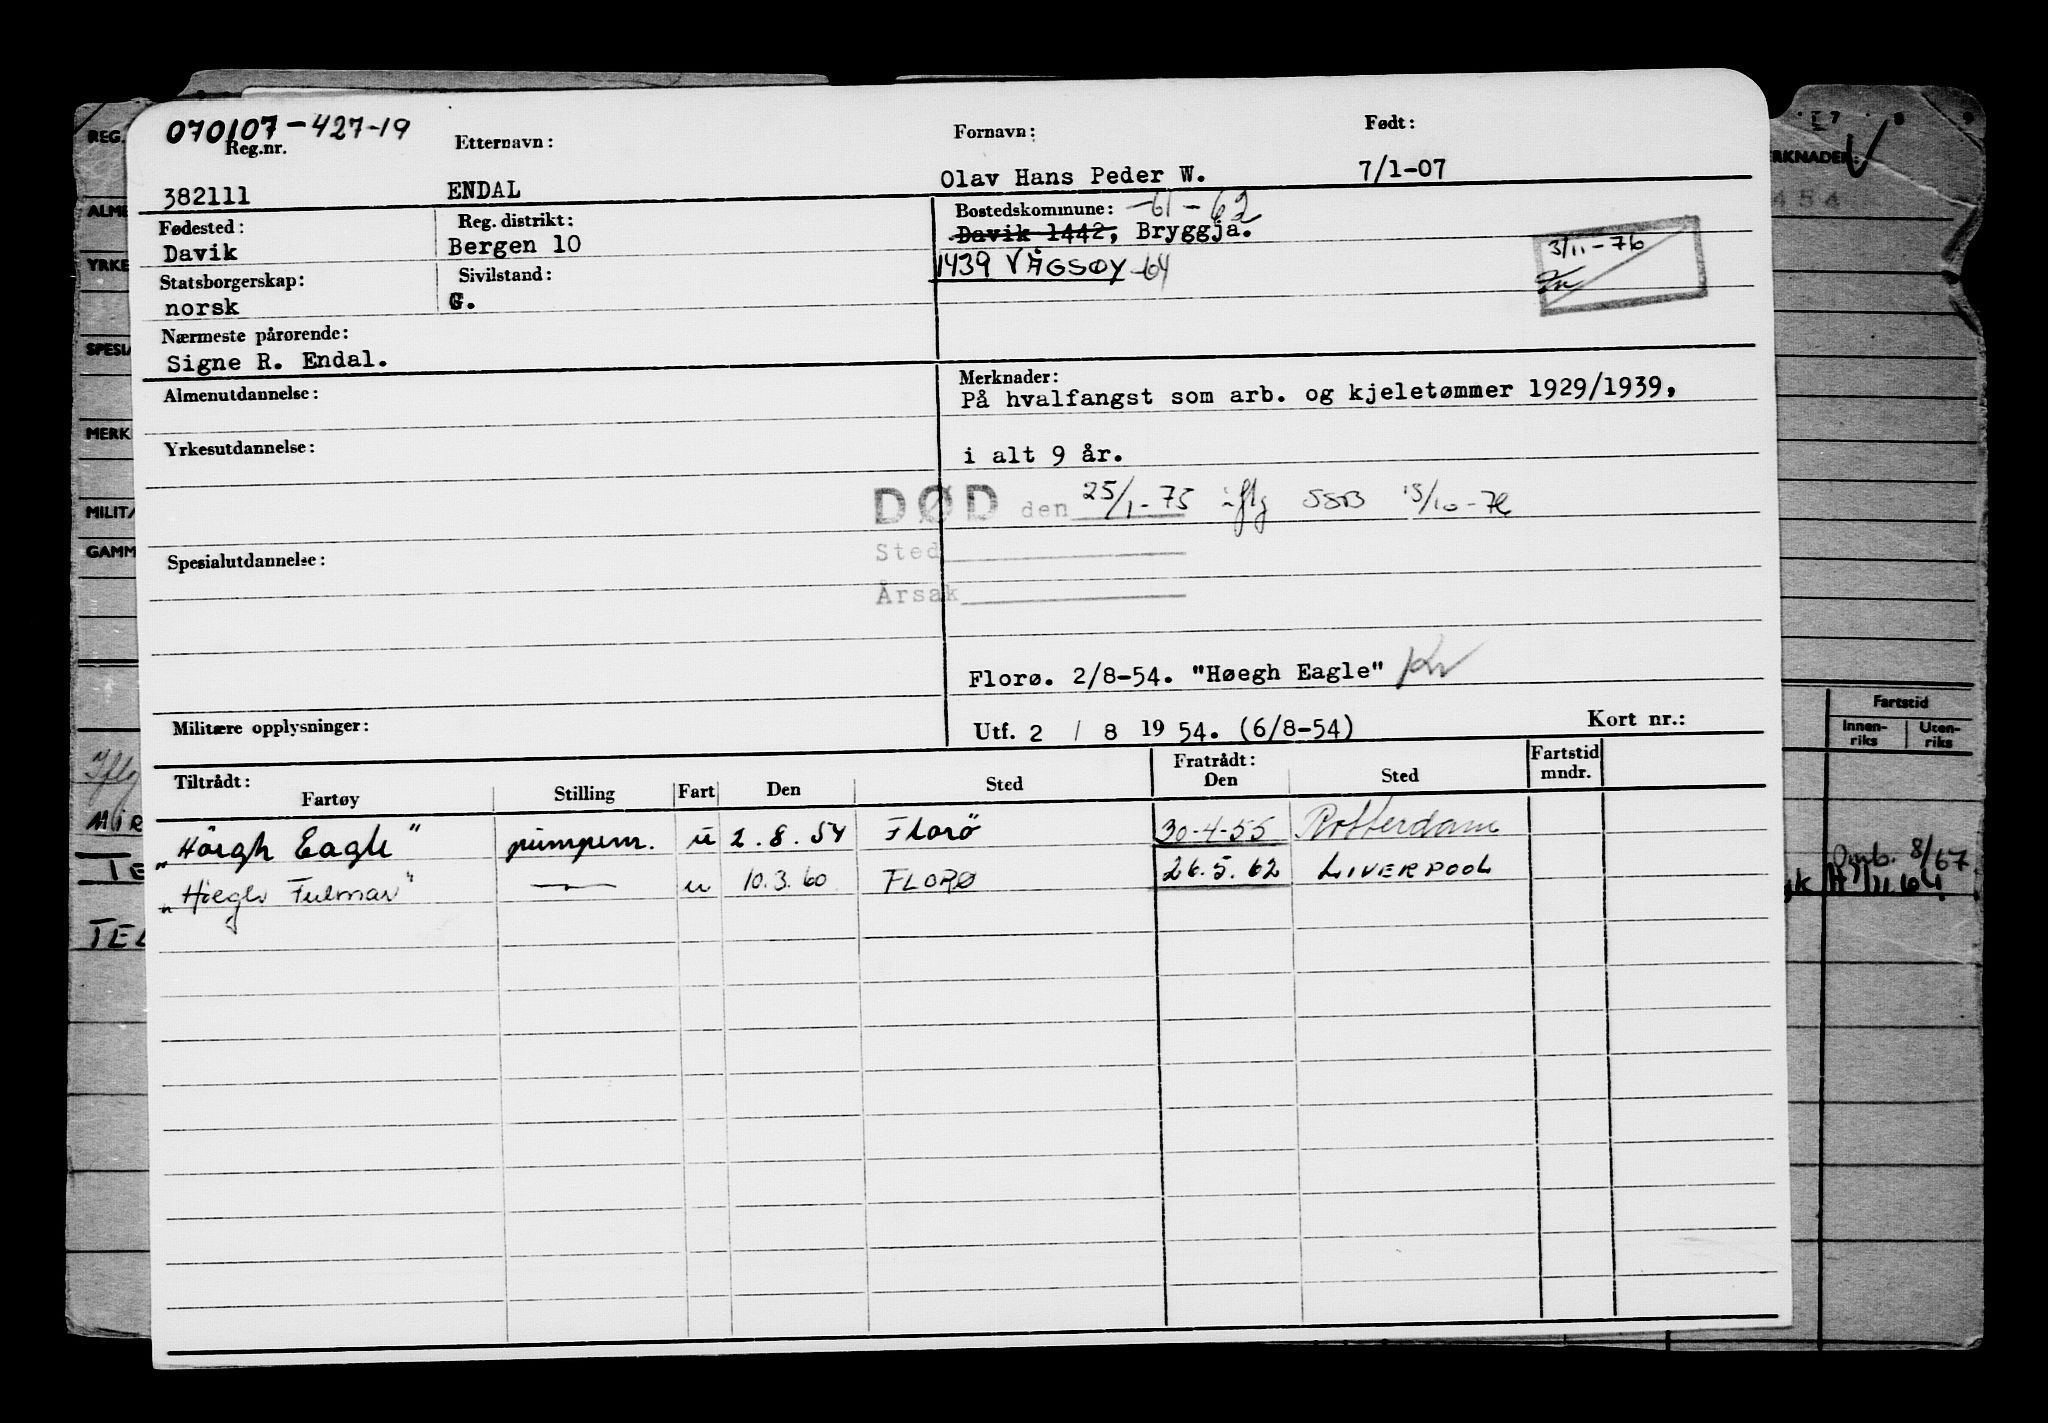 070107-427-19
Reg.nr. Etternavn: Fornavn: Født:
382111 ENDAL Olav Hans Peder W. 7/1-07
Fødested: Reg. distrikt: Bostedskommune: -61-62
Davik Bergen 10 Davik 1442, Bryggja.
1439 VÅGSØY -64
3/11-76
Statsborgerskap: Sivilstand:
norsk G.
Nærmeste pårørende:
Signe R. Endal.
Almenutdannelse: Merknader:
På hvalfangst som arb. og kjeletømmer 1929/1939,
Yrkesutdannelse:
i alt 9 år.
DØD den 25/1-75 iflg SSB 15/10-76
Sted
Årsak
Spesialutdannelse:
Florø. 2/8-54. "Høegh Eagle" Kv
Militære opplysninger: Utf. 2 / 8 19 54. (6/8-54) Kort nr.:
Tiltrådt: Fratrådt: Fartstid
Fartøy Stilling Fart Den Sted Den Sted mndr.
„Höegh Eagle" pumpem. u 2.8.54 Florö 30-4-55 Rotterdam
„Höegh Fulmar" — u 10.3.60 FLORØ 26.5.62 LIVERPOOL
REG.
ALME
YRKE
SPESIA
MERK
MILITÆ
GAMM
Iflg
MIR
TE
TEL
7 8 9
ERKNADER:
454
Fartstid
Innen-
riks
Uten-
riks
Omb. 8/67